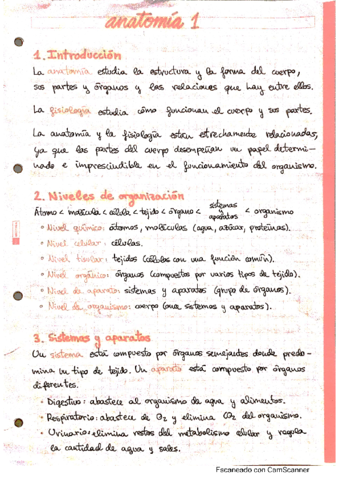 anatomía 1
1. Introducción
La anatomía estudia la estructura y la forma del cuerpo,
sus partes y órganos y las relaciones que hay entre ellos.
La fisiología estudia cómo funcionan el cuerpo y sus partes.
La anatomía y la fisiología están estrechamente relacionadas,
ya que las partes del cuerpo desempeñan un papel determi-
nado e imprescindible en el funcionamiento del organismo.
2. Niveles de organización
Átomo < molécula < célula < tejido < órgano < sistemas y aparatos < organismo
• Nivel químico: átomos, moléculas (agua, azúcar, proteínas).
• Nivel celular: células.
• Nivel tisular: tejidos (células con una función común).
• Nivel orgánico: órganos (compuestos por varios tipos de tejido).
• Nivel de aparato: sistemas y aparatos (grupo de órganos).
• Nivel de organismo: cuerpo (una sistemas y aparatos).
3. Sistemas y aparatos
Un sistema está compuesto por órganos semejantes donde predo-
mina un tipo de tejido. Un aparato está compuesto por órganos
diferentes.
• Digestivo: abastece al organismo de agua y alimentos.
• Respiratorio: abastece de O2 y elimina CO2 del organismo.
• Urinario: elimina restos del metabolismo celular y regula
la cantidad de agua y sales.
Escaneado con CamScanner